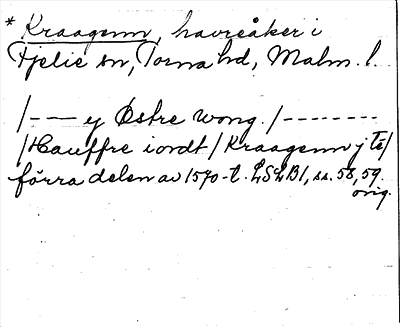 * Kraagenn, havreåker i
Fjelie sn, Torna hd, Malm. l.
/ - - - y Østre wong. / - - - - - - - -
/ Hauffre iordt / Kraagenn j tē/
förra delen av 1570-t. LSLB1, ss. 58, 59.
orig.